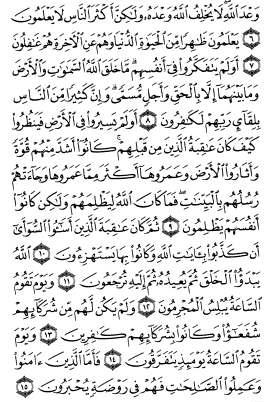 وَعْدَ ٱللَّهِ لَا يُخْلِفُ ٱللَّهُ وَعْدَهُۥ وَلَٰكِنَّ أَكْثَرَ ٱلنَّاسِ لَا يَعْلَمُونَ
٦ يَعْلَمُونَ ظَٰهِرًا مِّنَ ٱلْحَيَوٰةِ ٱلدُّنْيَا وَهُمْ عَنِ ٱلْءَاخِرَةِ هُمْ غَٰفِلُونَ
٧ أَوَلَمْ يَتَفَكَّرُوا۟ فِىٓ أَنفُسِهِم مَّا خَلَقَ ٱللَّهُ ٱلسَّمَٰوَٰتِ وَٱلْأَرْضَ
وَمَا بَيْنَهُمَآ إِلَّا بِٱلْحَقِّ وَأَجَلٍ مُّسَمًّى وَإِنَّ كَثِيرًا مِّنَ ٱلنَّاسِ
بِلِقَآئِ رَبِّهِمْ لَكَٰفِرُونَ ٨ أَوَلَمْ يَسِيرُوا۟ فِى ٱلْأَرْضِ فَيَنظُرُوا۟
كَيْفَ كَانَ عَٰقِبَةُ ٱلَّذِينَ مِن قَبْلِهِمْ كَانُوٓا۟ أَشَدَّ مِنْهُمْ قُوَّةً
وَأَثَارُوا۟ ٱلْأَرْضَ وَعَمَرُوهَآ أَكْثَرَ مِمَّا عَمَرُوهَا وَجَآءَتْهُمْ
رُسُلُهُم بِٱلْبَيِّنَٰتِ فَمَا كَانَ ٱللَّهُ لِيَظْلِمَهُمْ وَلَٰكِن كَانُوٓا۟
أَنفُسَهُمْ يَظْلِمُونَ ٩ ثُمَّ كَانَ عَٰقِبَةَ ٱلَّذِينَ أَسَٰٓـُٔوا۟ ٱلسُّوٓأَىٰٓ
أَن كَذَّبُوا۟ بِـَٔايَٰتِ ٱللَّهِ وَكَانُوا۟ بِهَا يَسْتَهْزِءُونَ ١٠ ٱللَّهُ
يَبْدَؤُا۟ ٱلْخَلْقَ ثُمَّ يُعِيدُهُۥ ثُمَّ إِلَيْهِ تُرْجَعُونَ ١١ وَيَوْمَ تَقُومُ
ٱلسَّاعَةُ يُبْلِسُ ٱلْمُجْرِمُونَ ١٢ وَلَمْ يَكُن لَّهُم مِّن شُرَكَآئِهِمْ
شُفَعَٰٓؤُا۟ وَكَانُوا۟ بِشُرَكَآئِهِمْ كَٰفِرِينَ ١٣ وَيَوْمَ
تَقُومُ ٱلسَّاعَةُ يَوْمَئِذٍ يَتَفَرَّقُونَ ١٤ فَأَمَّا ٱلَّذِينَ ءَامَنُوا۟
وَعَمِلُوا۟ ٱلصَّٰلِحَٰتِ فَهُمْ فِى رَوْضَةٍ يُحْبَرُونَ ١٥